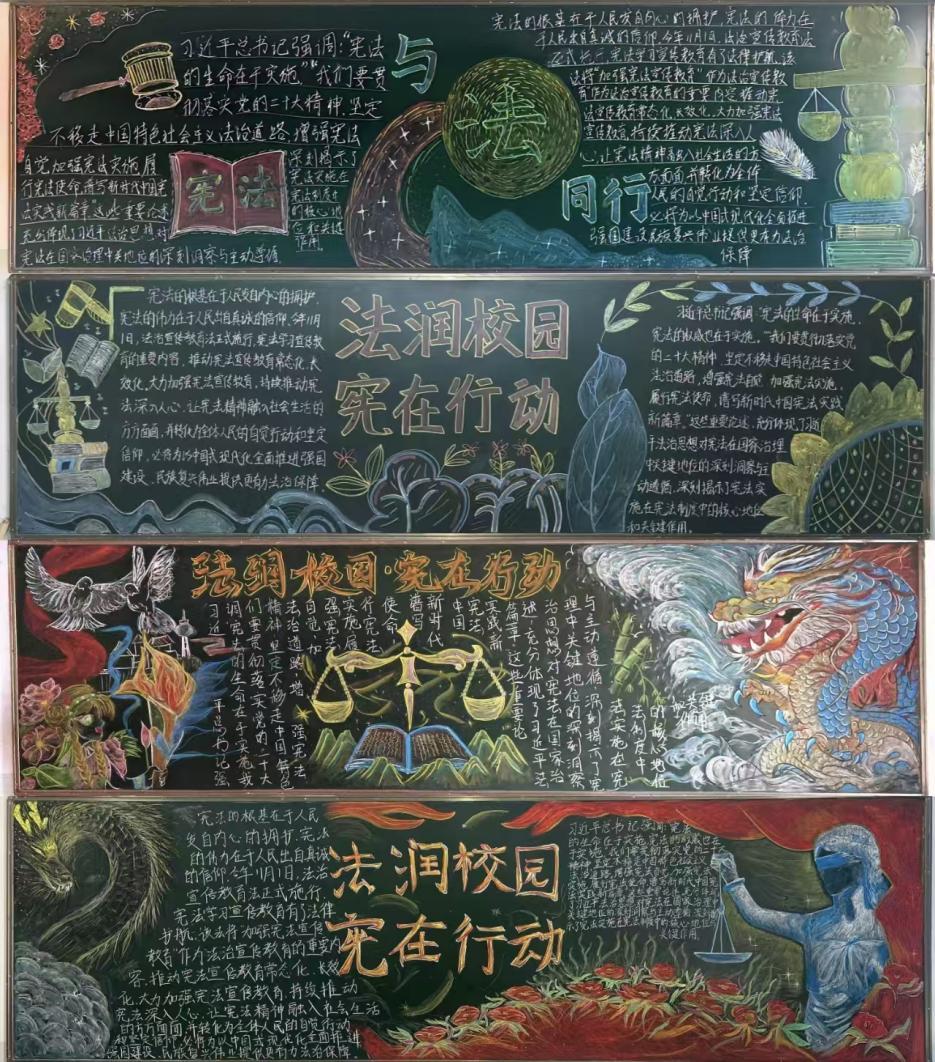 习近平总书记强调:“宪法
的生命在于实施”“我们要贯
彻落实党的二十大精神,坚定
不移走中国特色社会主义法治道路,增强宪法
自觉,加强宪法实施,履
行宪法使命,谱写新时代中国宪
法实践新篇章”这些重要论述
充分体现了习近平法治思想对
宪法在国家治理中关键地位的深刻洞察与主动遵循,
深刻揭示了
宪法实施在
宪法制度中
的核心地
位和关键
作用
宪法
与
法
同行
宪法的根基在于人民发自内心的拥护,宪法的伟力在
于人民出自真诚的信仰.今年11月1日,法治宣传教育法
正式施行,宪法学习宣传教育有了法律护航,该
法将“加强宪法宣传教育”作为法治宣传教
育作为法治宣传教育的重要内容,推动宪
法宣传教育常态化,长效化,大力加强宪法
宣传教育,持续推动宪法深入人
心,让宪法精神融入社会生活的方
方面面并转化为全体
人民的自觉行动和坚定信仰
必将为以中国式现代化全面推进
强国建设民族复兴伟业提供更有力法治
保障
宪法的根基在于人民发自内心的拥护,
宪法的伟力在于人民出自真诚的信仰.今年11月
1日,法治宣传教育法正式施行,宪法学习宣传教
育的重要内容,推动宪法宣传教育常态化,长
效化,大力加强宪法宣传教育,持续推动宪
法深入人心,让宪法精神融入社会生活的
方方面面,并转化为全体人民的自觉行动和坚定
信仰,必将为以中国式现代化全面推进强国
建设,民族复兴伟业提供更有力法治保障.
法润校园
宪在行动
习近平总书记强调:“宪法的生命在于实施,
宪法的权威也在于实施.”“我们要贯彻落实党
的二十大精神,坚定不移走中国特色社会主义
法治道路,增强宪法自觉,加强宪法实施,
履行宪法使命,谱写新时代中国宪法实践
新篇章.”这些重要论述,充分体现了习近
平法治思想对宪法在国家治理
中关键地位的深刻洞察与主
动遵循,深刻揭示了宪法实
施在宪法制度中的核心地位
和关键作用.
法润校园·宪在行动
习近平总书记强
调宪法的生命在于实施我
们要贯彻落实党的二十大
精神坚定不移走中国特色
法治道路增强宪法
自觉加
强宪法
实施履
行宪法
使命
谱写
新时代
中国
宪法
实践新
篇章”这些重要论
述,充分体现了习近平法
治思想对宪法在国家治
理中关键地位的深刻洞察
与主动遵循,深刻揭示了宪
法实施在宪
法制度中
的核心地位
和关键作用
“宪法的根基在于人民
发自内心的拥护,宪法
的伟力在于人民出自真诚
的信仰.今年11月1日,法治
宣传教育法正式施行,
宪法学习宣传教育有了法律
护航,该法将加强宪法宣传
教育作为法治宣传教育的重要内
容,推动宪法宣传教育常态化,长效
化,大力加强宪法宣传教育,持续推动
宪法深入人心,让宪法精神融入社会生活
的方方面面并转化为全体人民的自觉行动
和坚定信仰,必将为以中国式现代化全面推进
强国建设,民族复兴伟业提供更有力法治保障
法润校园
宪在行动
习近平总书记强调:宪法
的生命在于实施,宪法的权威也
关键作用.